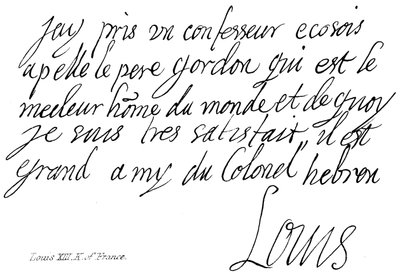 Jay pris vn confesseur ecosois
apelle le pere gordon qui est le
meeleur hõme du monde et de quoy
je suis tres satisfait il est
grand amy du Colonel hebron
Louis
Louis XIII. K. of France.